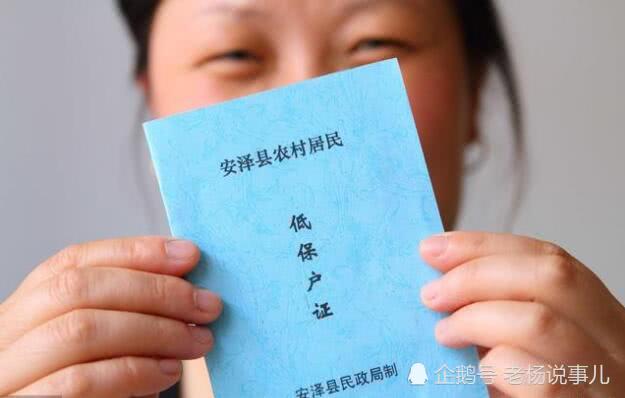 安泽县农村居民
低
保
户
证
安泽县民政局制
企鹅号 老杨说事儿